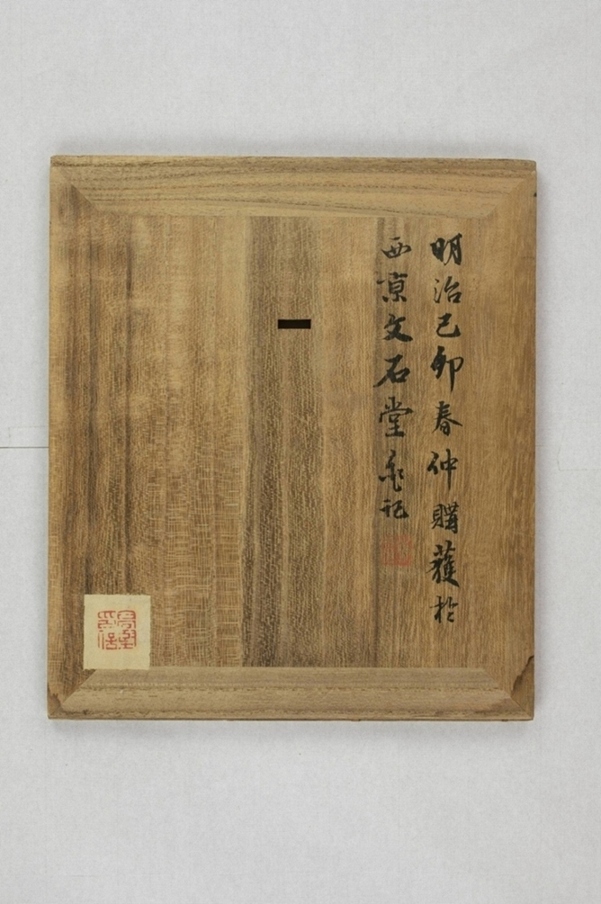 明治己卯春仲購獲於
西京文石堂 記